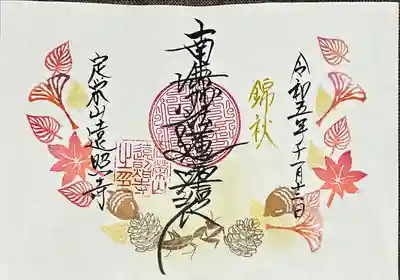 令和五年十一月
錦秋
南無妙法蓮華経
定栄山遠照寺